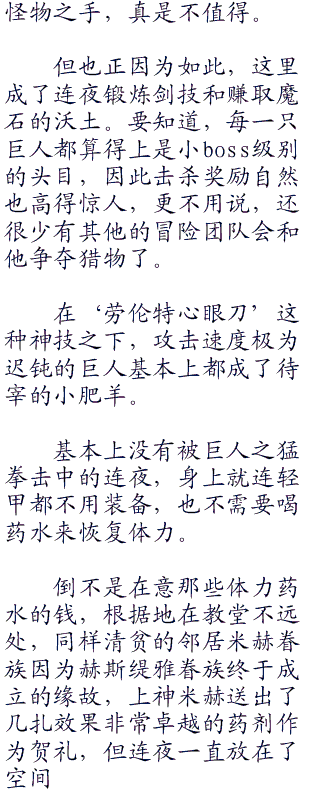 怪物之手，真是不值得。
但也正因为如此，这里
成了连夜锻炼剑技和赚取魔
石的沃土。要知道，每一只
巨人都算得上是小boss级别
的头目，因此击杀奖励自然
也高得惊人，更不用说，还
很少有其他的冒险团队会和
他争夺猎物了。
在‘劳伦特心眼刀’这
种神技之下，攻击速度极为
迟钝的巨人基本上都成了待
宰的小肥羊。
基本上没有被巨人之猛
拳击中的连夜，身上就连轻
甲都不用装备，也不需要喝
药水来恢复体力。
倒不是在意那些体力药
水的钱，根据地在教堂不远
处，同样清贫的邻居米赫眷
族因为赫斯缇雅眷族终于成
立的缘故，上神米赫送出了
几扎效果非常卓越的药剂作
为贺礼，但连夜一直放在了
空间